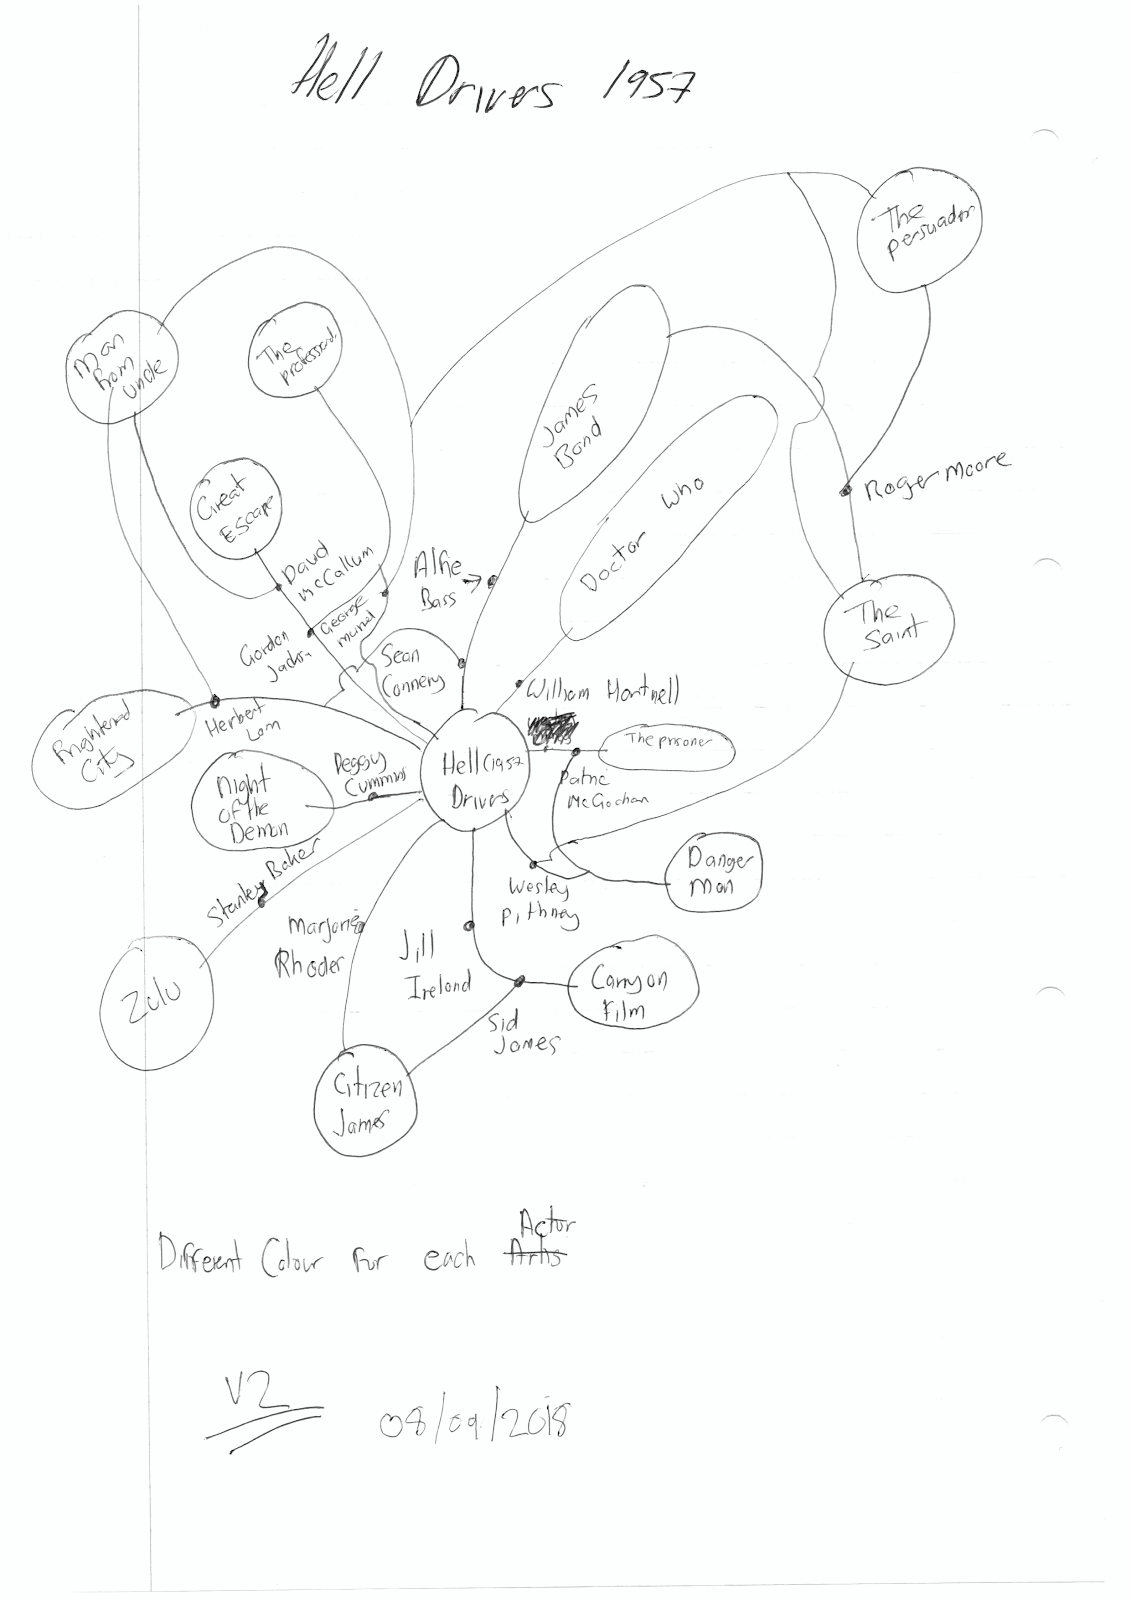 Hell Drivers 1957
The
persuader
Man
from
uncle
The
professional
James
Bond
Great
Escape
Doctor Who
Roger Moore
David
McCallum
Alfie
Bass
George
Gordon
The
Saint
Sean
Connery
William Hartnell
Herbert
Lom
Frightened
City
The prisoner
Hell (1957
Drivers
Peggy
Cummins
Night
of the
Demon
Patric
McGoohan
Danger
Man
Stanley Baker
Wesley
Pithney
Marjorie
Rhoder
Jill
Ireland
Zulu
Carry on
Film
Sid
James
Citizen
James
Actor
Different Colour for each Artis
V2
08/09/2018